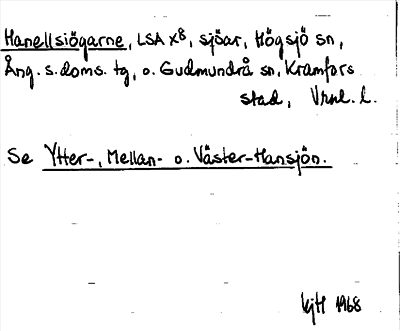 Hanellsiögarne, LSA X8, sjöar, Högsjö sn,
Ång. s. doms. tg, o. Gudmundrå sn, Kramfors
stad, Vrnl. l.
Se Ytter-, Mellan- o. Väster-Hansjön.
kjH 1968